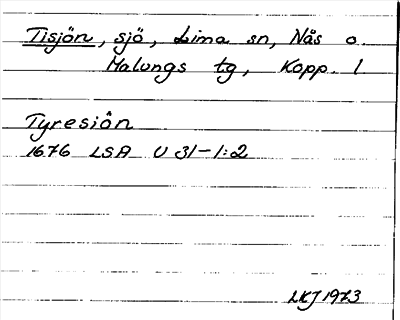 Tisjön, sjö, Lima sn, Nås o.
Malungs tg, Kopp. l
Tyresiön
1676 LSA U 31-1:2
LKJ 1973